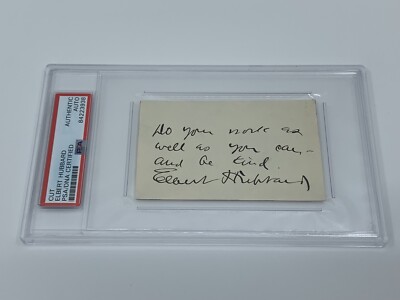 CUT
ELBERT HUBBARD
PSA/DNA CERTIFIED
AUTHENTIC
AUTO
84223938
PSA
Do your work as
well as you can -
and be kind.
Elbert Hubbard